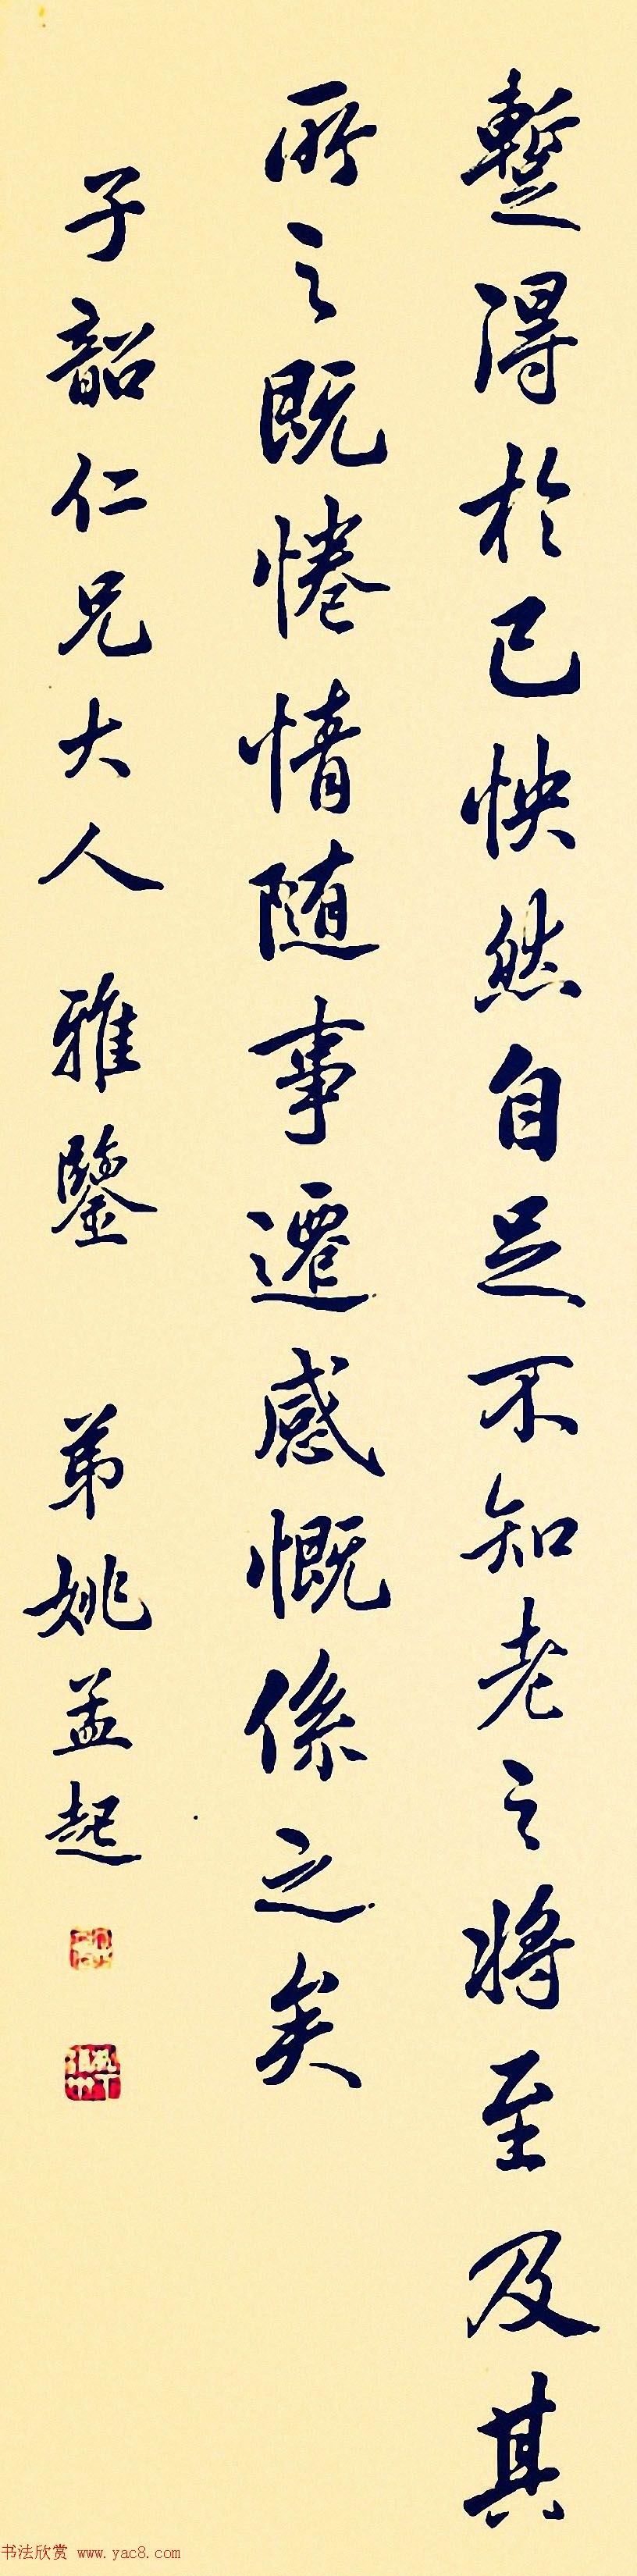 蹔得於己怏然自足不知老之將至及其
所之既惓情随事遷感慨係之矣
子韶仁兄大人 雅鑒 弟姚孟起
书法欣赏 www.yac8.com